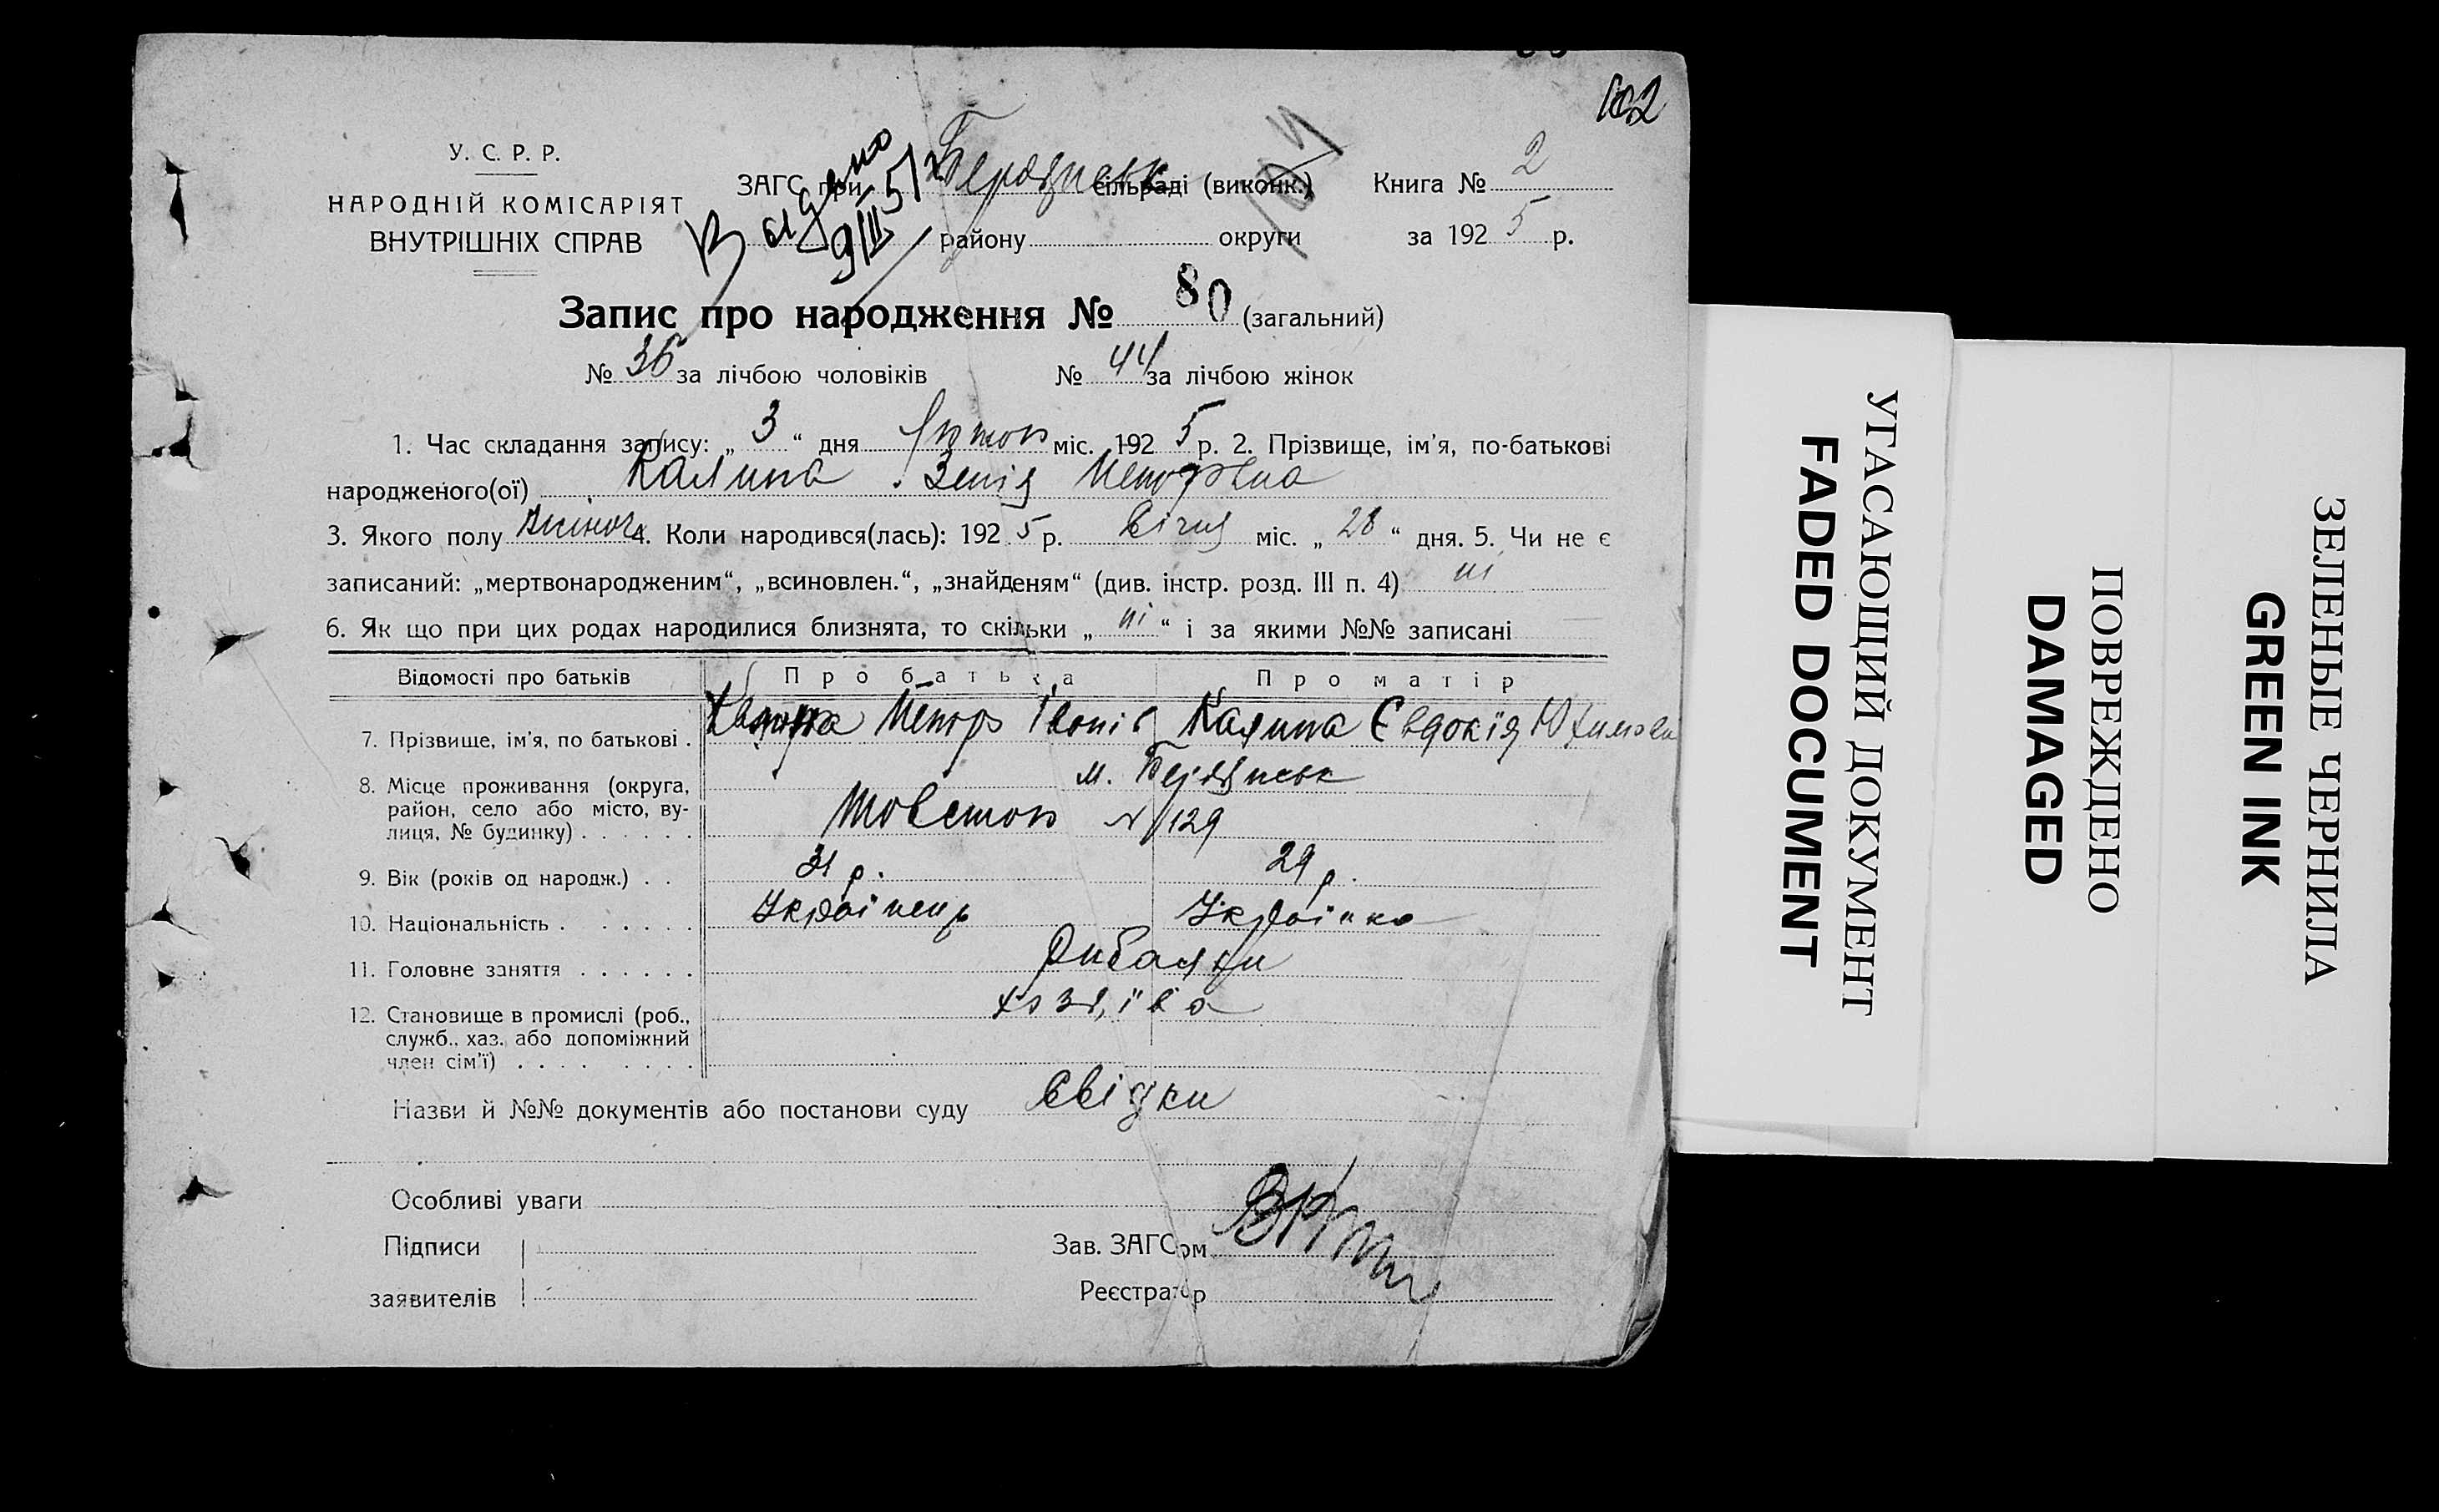 102
У. С. Р. Р.
НАРОДНІЙ КОМІСАРІЯТ
ВНУТРІШНІХ СПРАВ
Выдано
9/III-51
ЗАГС при Бердянськ сільраді (виконк.) Книга № 2
району округи за 1925 р.
Запис про народження № 80 (загальний)
№ 36 за лічбою чоловіків № 44 за лічбою жінок
1. Час складання запису: „3“ дня лютого міс. 1925 р. 2. Прізвище, ім'я, по-батькові
народженого(ої) Калина
3. Якого полу жіноч 4. Коли народився(лась): 1925 р. вічня міс. „28“ дня. 5. Чи не є
записаний: „мертвонародженим“, „всиновлен.“, „знайденям“ (див. інстр. розд. III п. 4) ні
6. Як що при цих родах народилися близнята, то скільки „ні“ і за якими №№ записані
Відомості про батьків Про батька Про матір
7. Прізвище, ім'я, по батькові . Калина Петро Іванів Калина Євдокія Юхимовн
8. Місце проживання (округа, м. Бердянськ
район, село або місто, ву-
лиця, № будинку) . . . . . . № 129
9. Вік (років од народж.) . . 31 р. 29 р.
10. Національність . . . . . . Українець Українка
11. Головне заняття . . . . . . Рибалки
12. Становище в промислі (роб., хозяїва
служб., хаз. або допоміжний
член сім'ї) . . . . . . . .
Назви й №№ документів або постанови суду свідки
Особливі уваги
Підписи Зав. ЗАГСом
заявителів Реєстратор
УГАСАЮЩИЙ ДОКУМЕНТ
FADED DOCUMENT
ПОВРЕЖДЕНО
DAMAGED
ЗЕЛЕНЫЕ ЧЕРНИЛА
GREEN INK